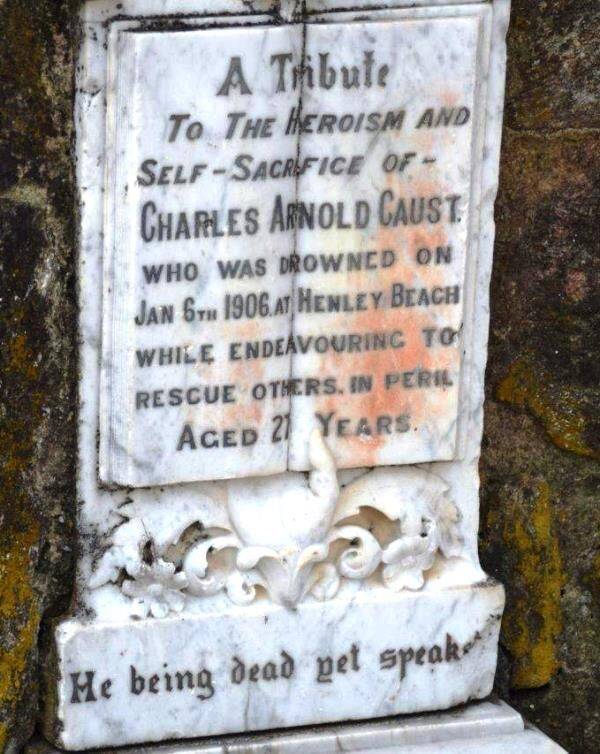 A Tribute
TO THE HEROISM AND
SELF-SACRIFICE OF-
CHARLES ARNOLD CAUST.
WHO WAS DROWNED ON
JAN 6TH 1906. AT HENLEY BEACH
WHILE ENDEAVOURING TO
RESCUE OTHERS. IN PERIL
AGED 21 YEARS.
He being dead yet